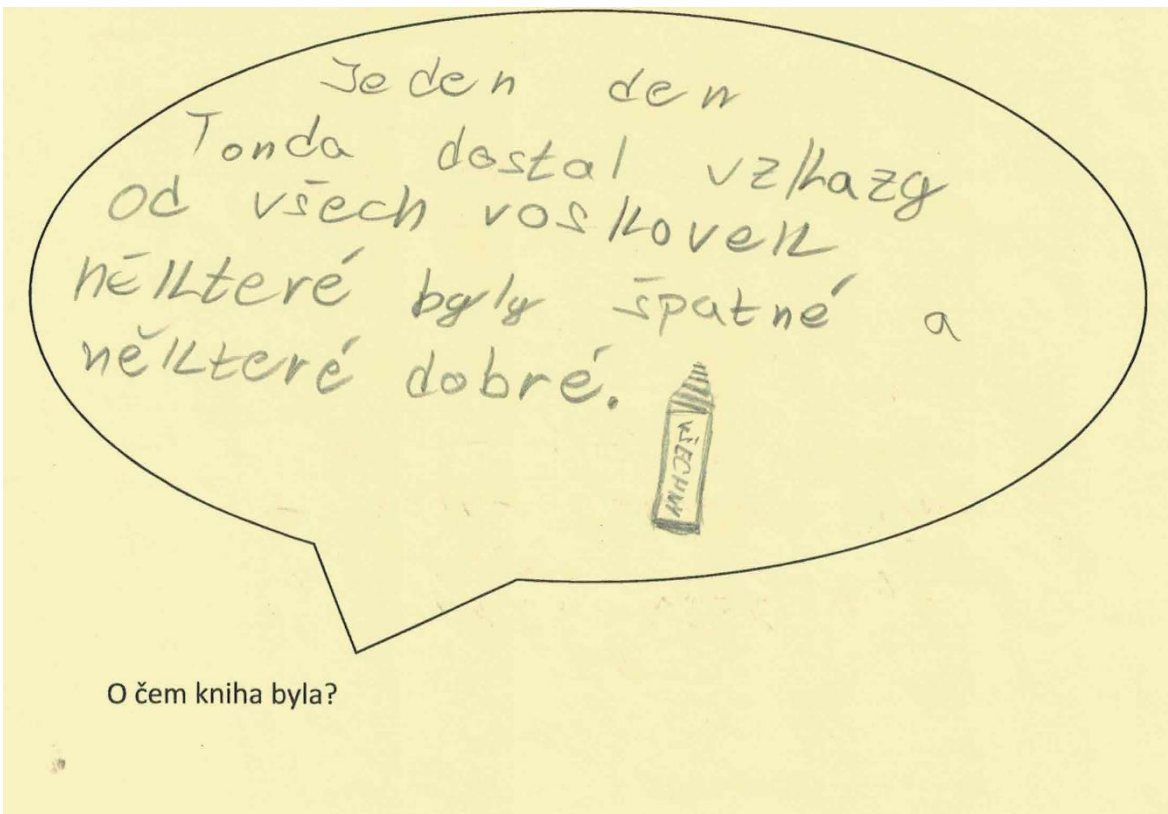 Jeden den
Tonda dostal vzkazy
od všech voskovek
některé byly špatné a
některé dobré.
VŠECHNY
O čem kniha byla?